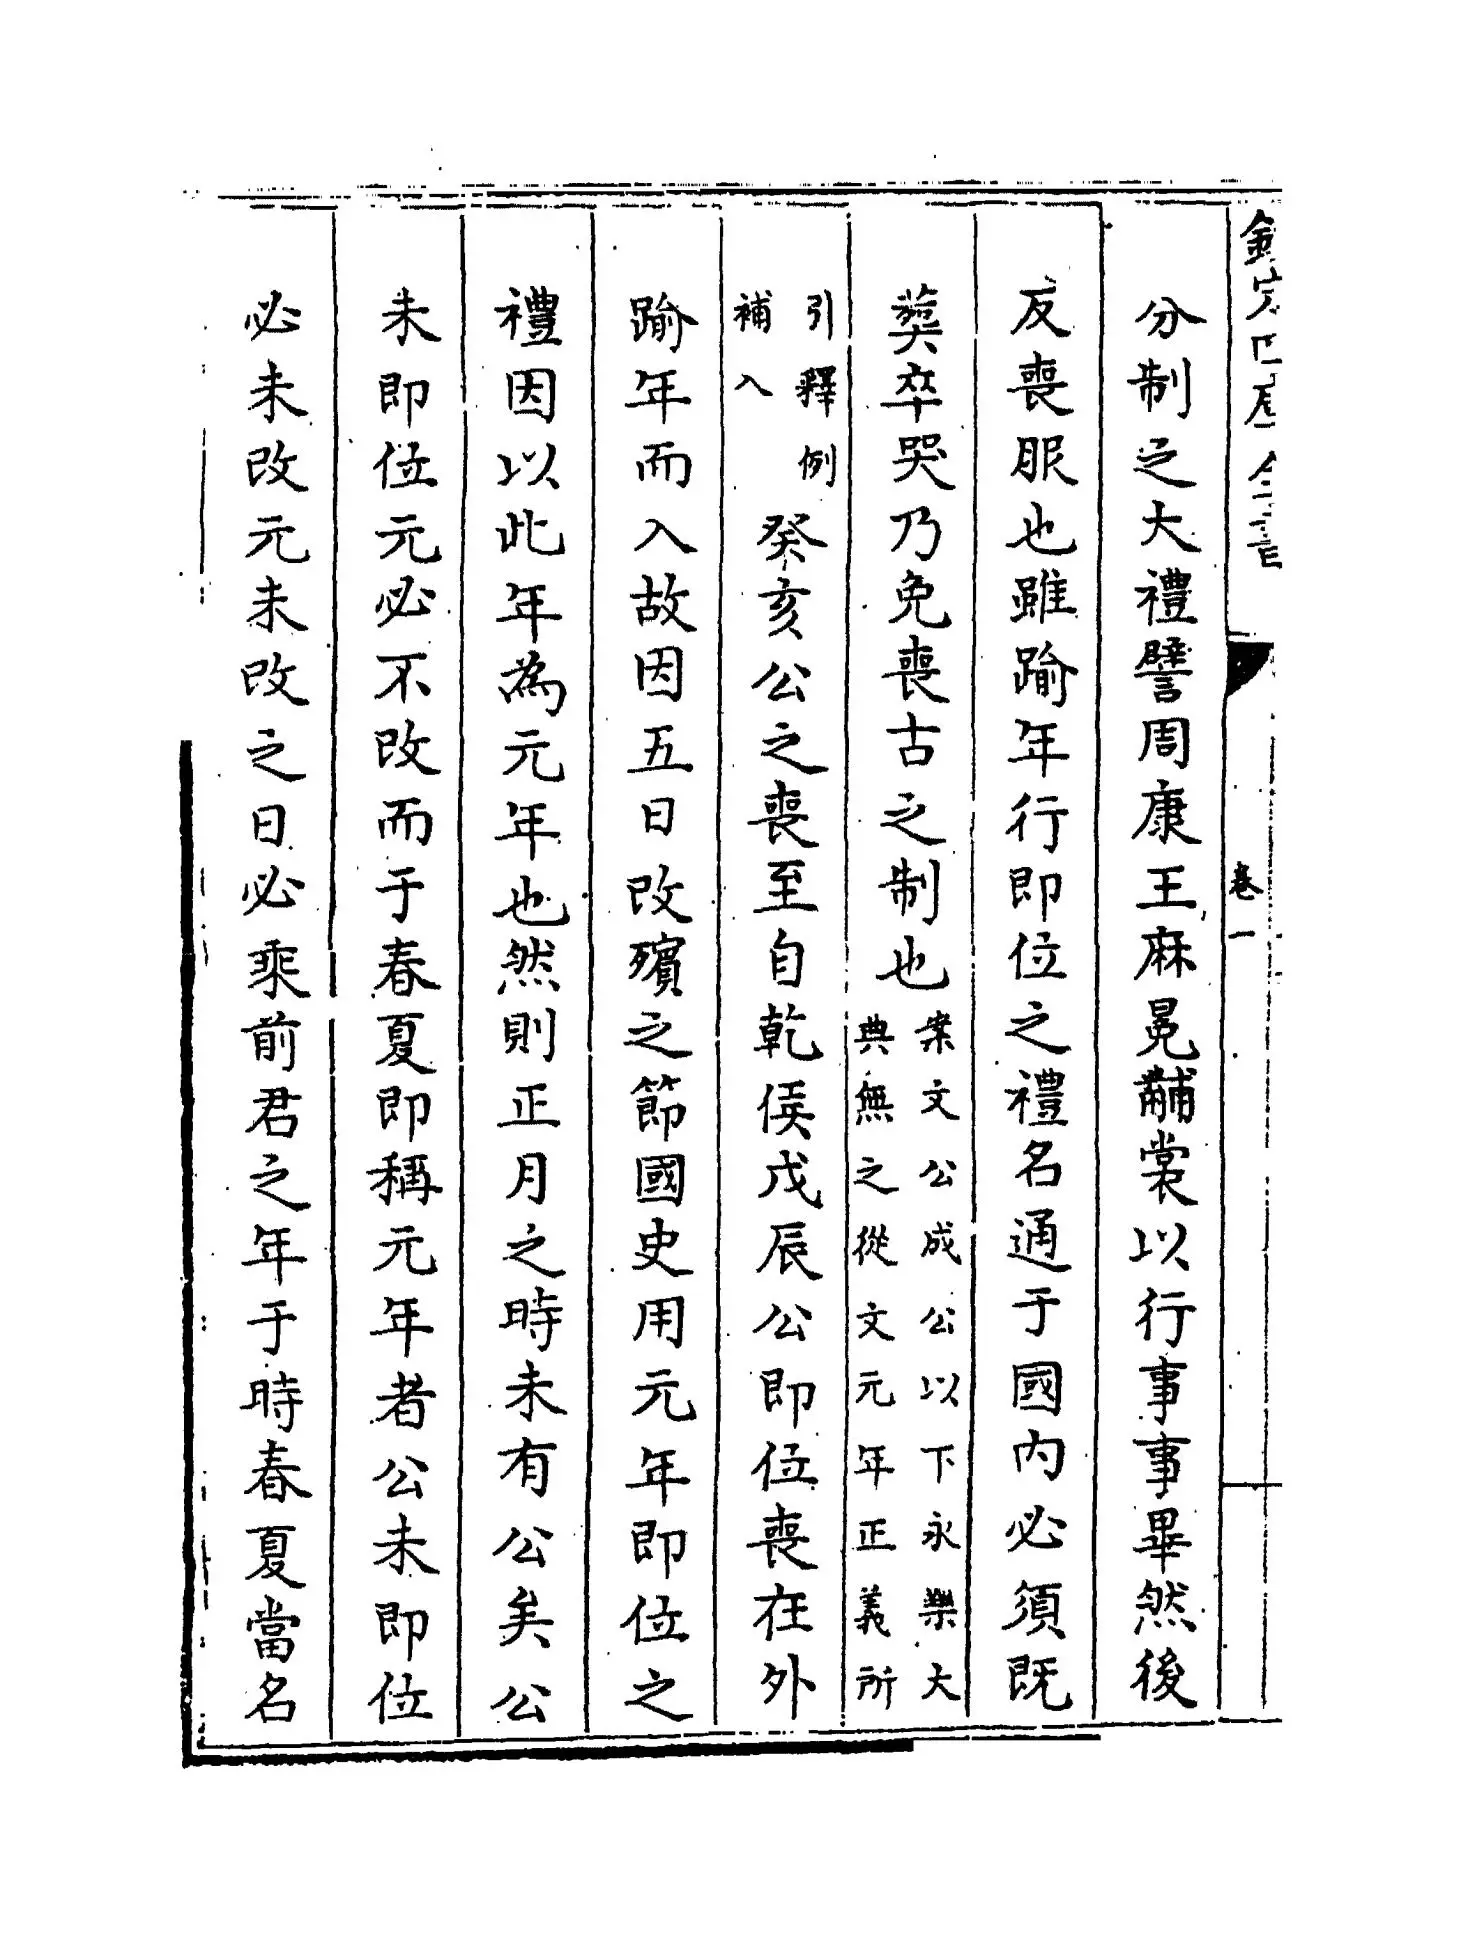 欽定四庫全書
卷一
分制之大禮譬周康王麻冕黼裳以行事事畢然後
反喪服也雖踰年行即位之禮名通于國內必須既
葬卒哭乃免喪古之制也案文公成公以下永樂大
典無之從文元年正義所
引釋例
補入癸亥公之喪至自乾侯戊辰公即位喪在外
踰年而入故因五日改殯之節國史用元年即位之
禮因以此年為元年也然則正月之時未有公矣公
未即位元必不改而于春夏即稱元年者公未即位
必未改元未改之日必乘前君之年于時春夏當名